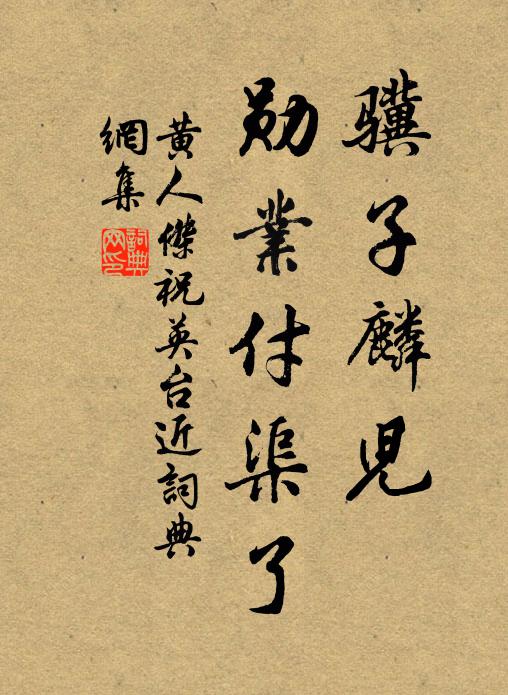 骥子麟兒
勛業付渠了
黃人傑祝英台近詞典
網集
詞典網印